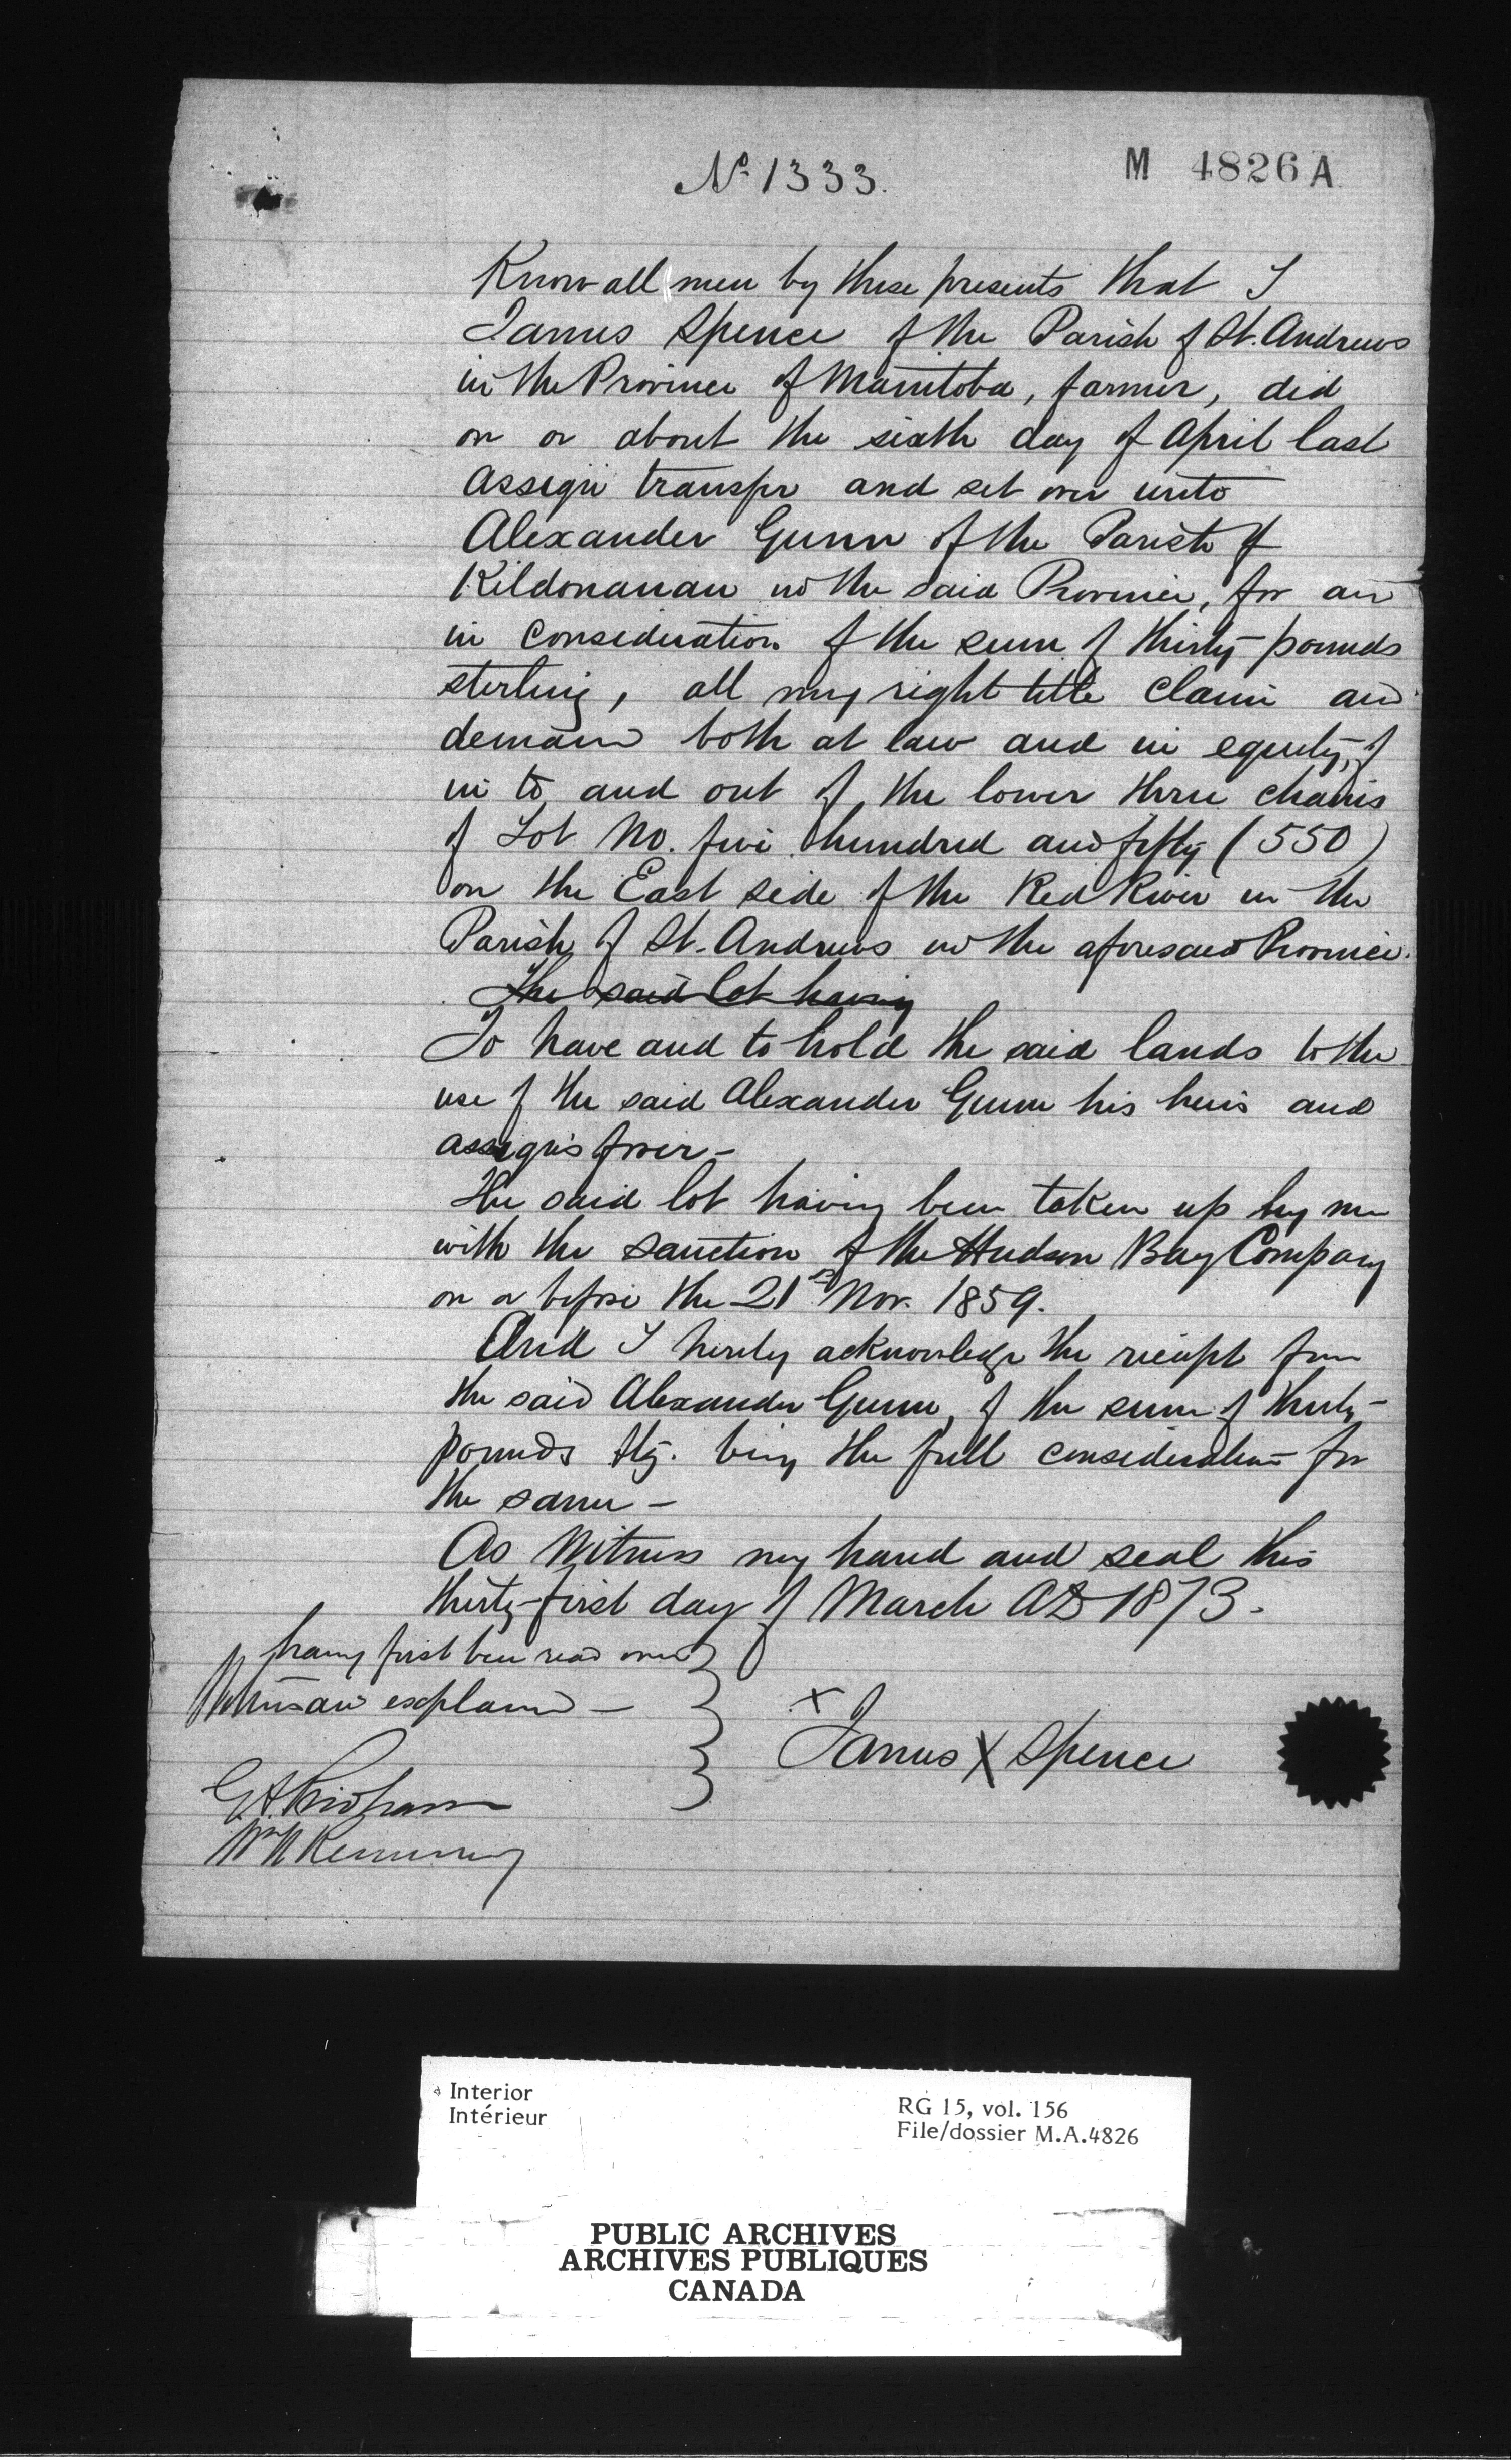 No. 1333.
M 4826 A
Know all men by these presents that I
James Spence of the Parish of St. Andrews
in the Province of Manitoba, farmer, did
on or about the sixth day of April last
assign transfer and set over unto
Alexander Gunn of the Parish of
Kildonanan in the said Province, for and
in consideration of the sum of thirty pounds
sterling, all my right title claim and
demand both at law and in equity, of
in to and out of the lower three chains
of Lot No. five hundred and fifty (550)
on the East side of the Red River in the
Parish of St. Andrews in the aforesaid Province.
The said lot having
To have and to hold the said lands to the
use of the said Alexander Gunn his heirs and
assigns forever –
The said lot having been taken up by me
with the sanction of the Hudson Bay Company
on or before the 21st Nov. 1859.
And I hereby acknowledge the receipt from
the said Alexander Gunn, of the sum of thirty
pounds stg. being the full consideration for
the same –
As Witness my hand and seal this
thirty-first day of March AD 1873.
having first been read over
explained –
X
James X Spence
Interior
Intérieur
RG 15, vol. 156
File/dossier M.A.4826
PUBLIC ARCHIVES
ARCHIVES PUBLIQUES
CANADA